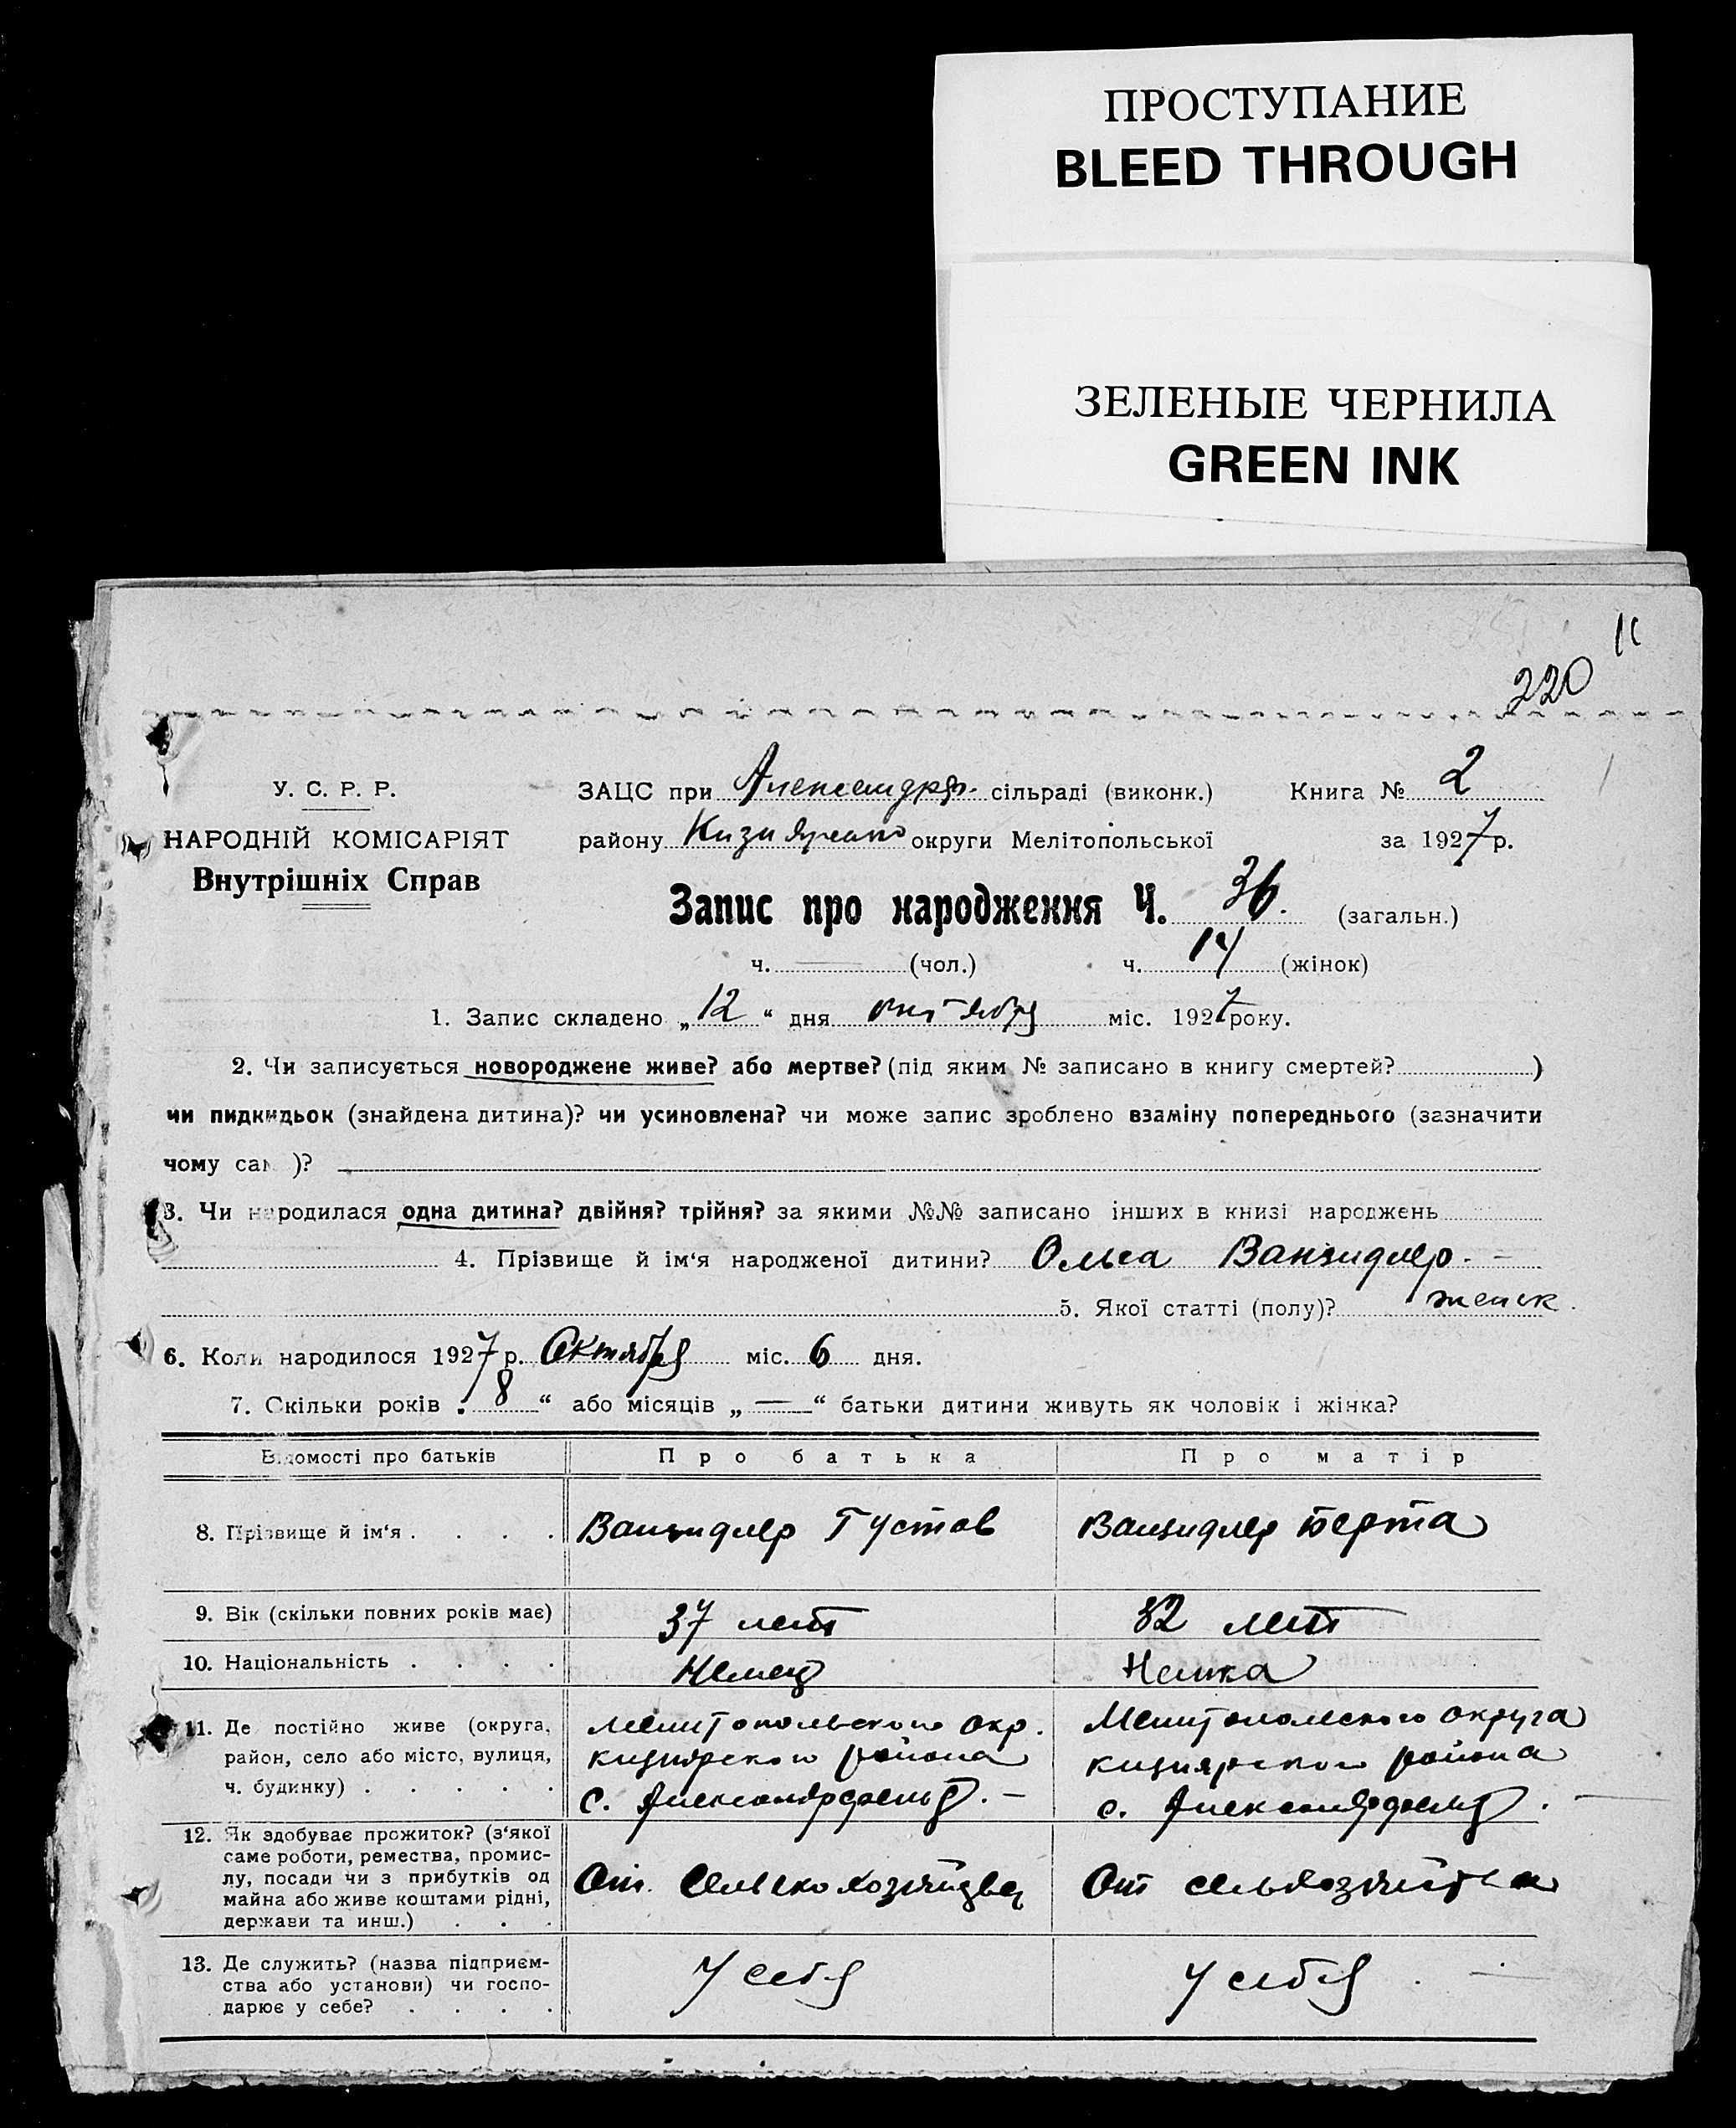 ПРОСТУПАНИЕ
BLEED THROUGH
ЗЕЛЕНЫЕ ЧЕРНИЛА
GREEN INK
220
У. С. Р. Р.
ЗАЦС при Александрф. сільраді (виконк.) Книга № 2
НАРОДНІЙ КОМІСАРІЯТ
району Кизиярского округи Мелітопольської за 1927 р.
Внутрішніх Справ
Запис про народження Ч. 36. (загальн.)
ч. — (чол.) ч. 14 (жінок)
1. Запис складено „12“ дня октября міс. 1927 року.
2. Чи записується новороджене живе? або мертве? (під яким № записано в книгу смертей? )
чи пидкидьок (знайдена дитина)? чи усиновлена? чи може запис зроблено взаміну попереднього (зазначити
чому сам )?
3. Чи народилася одна дитина? двійня? трійня? за якими №№ записано інших в книзі народжень
4. Прізвище й ім‘я народженої дитини? Ольга Ванзидлер. -
5. Якої статті (полу)? женск.
6. Коли народилося 1927 р. Октября міс. 6 дня.
7. Скільки років „8“ або місяців „—“ батьки дитини живуть як чоловік і жінка?
Відомості про батьків Про батька Про матір
8. Прізвище й ім‘я . . . . Ванзидлер Густав Ванзидлер Берта
9. Вік (скільки повних років має) 37 лет 32 лет
10. Національність . . . . Немец Немка
11. Де постійно живе (округа,
район, село або місто, вулиця,
ч. будинку) . . . . .
Мелитопольского окр.
Кизиярского района
с. Александрфельд. -
Мелитопольского округа
Кизиярского района
с. Александрфельд.
12. Як здобуває прожиток? (з‘якої
саме роботи, ремества, промис-
лу, посади чи з прибутків од
майна або живе коштами рідні,
держави та инш.) . . .
От. Сельскохозяйства
От сельхозяйства
13. Де служить? (назва підприєм-
ства або установи) чи госпо-
дарює у себе? . . . .
У себя
У себя . —